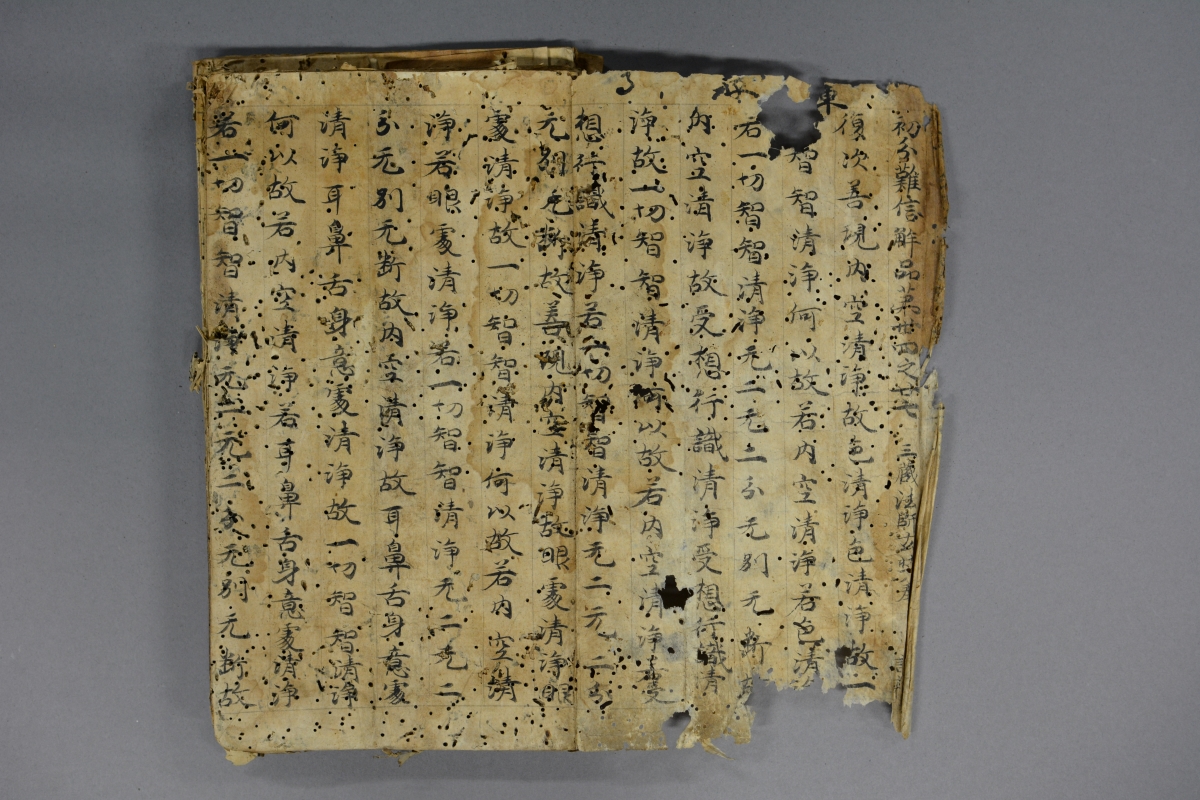 初分難信解品第卅四之廿七 三藏法師玄奘
復次善現內空清淨故色清淨色清淨故一
智智清淨何以故若內空清淨若色清
若一切智智清淨无二无二分无別无斷
內空清淨故受想行識清淨受想行識清
淨故一切智智清淨何以故若內空清淨受
想行識清淨若一切智智清淨无二无二分
无別无斷故善現內空清淨故眼處清淨眼
處清淨故一切智智清淨何以故若內空清
淨若眼處清淨若一切智智清淨无二无二
分无別无斷故內空清淨故耳鼻舌身意處
清淨耳鼻舌身意處清淨故一切智智清淨
何以故若內空清淨若耳鼻舌身意處清淨
若一切智智清淨无二无二分无別无斷故